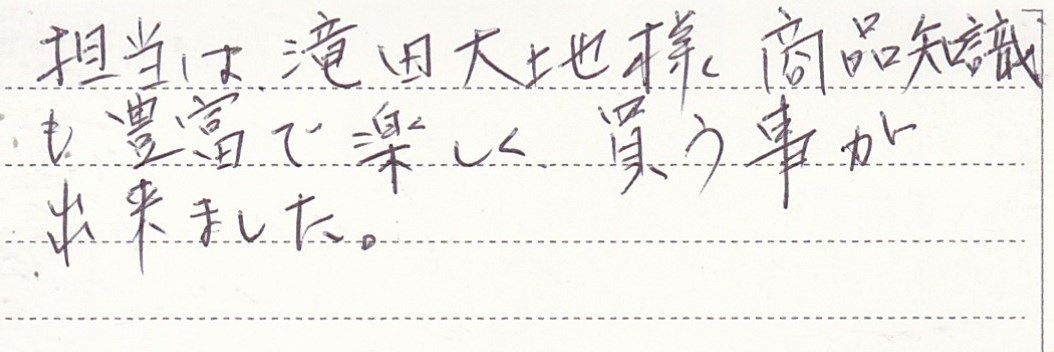 担当は滝田大地様 商品知識
も豊富で楽しく買う事が
出来ました。